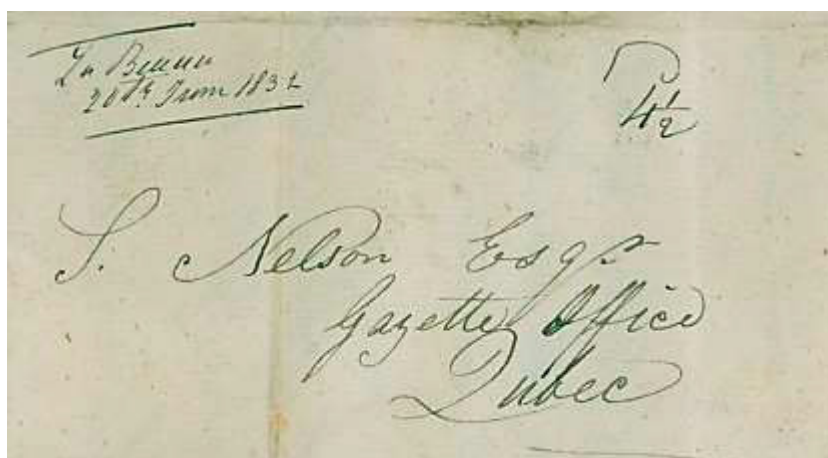 La Beauce
20th June 1832
4½
S. Nelson Esqr
Gazette Office
Qubec